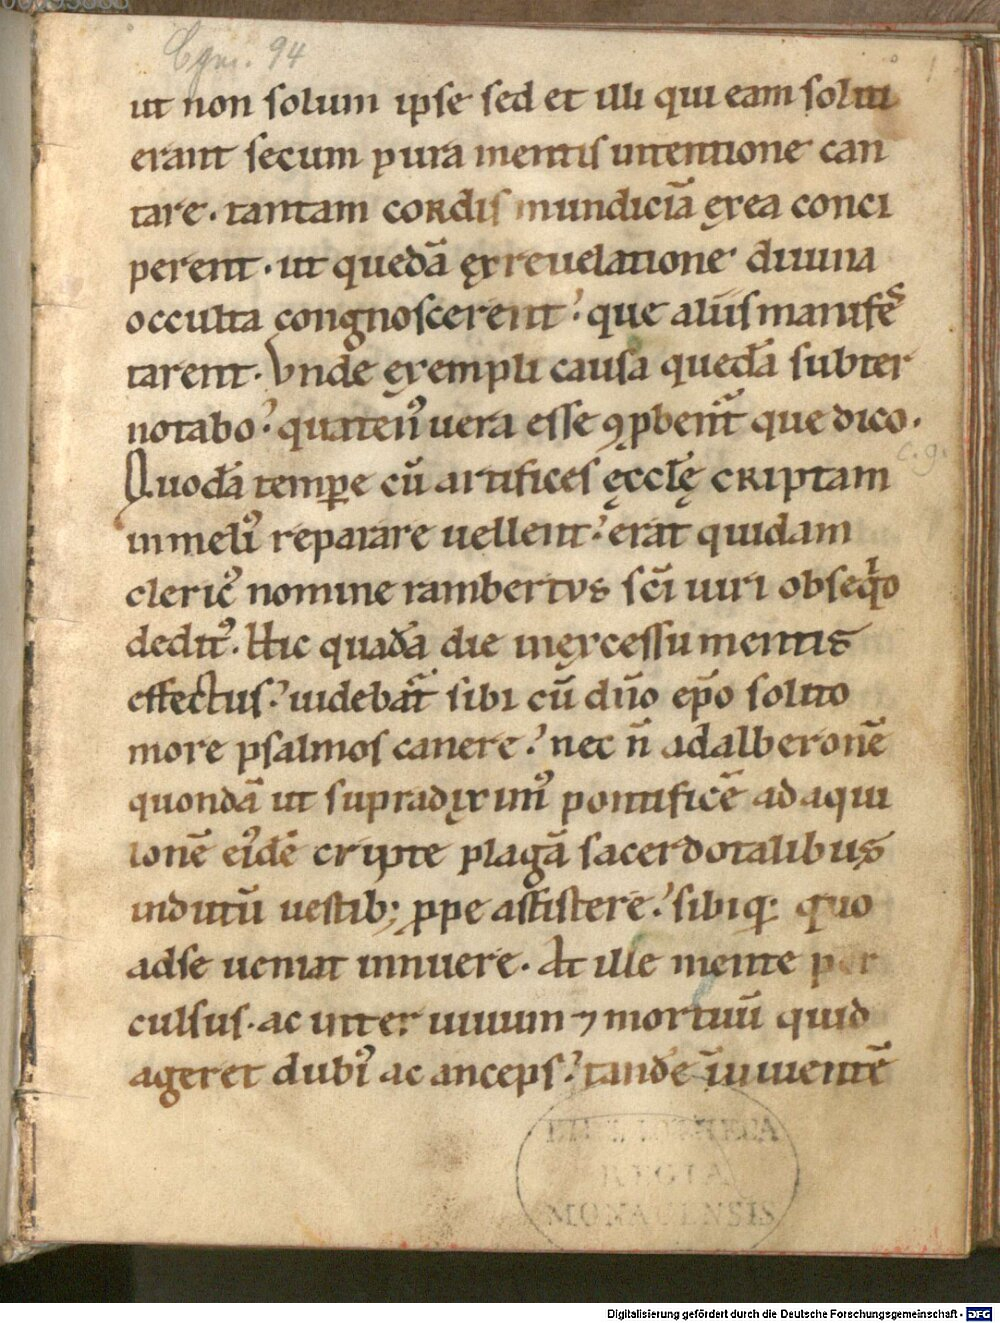 Cgm. 94
1
ut non solum ipse sed et illi qui eam soliti
erant secum pura mentis intentione can
tare. tantam cordis mundiciā ęxea conci
perent. ut quedā ęxreuelatione diuina
occulta congnoscerent? que aliis manifes
tarent. Vnde ęxempli causa quedā subter
notabo? quaten᾽ uera esse ꝯꝓbent᷑ que dico.
c.g.
Quodā temꝑe cū artifices ęccłę criptam
inmeli᾽ reparare uellent? erat quidam
cleric᾽ nomine rambertus sc̄i uiri obseqͥo
dedit᾽. Hic quadā die inęxcessu mentis
effectus? uidebat᷑ sibi cū dn̄o ep̄o solito
more psalmos canere? nec n̄ adalberonē
quondā ut supradiximᷤ pontificē ad aqui
lonē ei᾽dē cripte plagā sacerdotalibus
indutū uestib; ꝓpe assistere? sibiq; quo
adse ueniat innuere. At ille mente per
culsus. ac inter uiuum ⁊ mortuū quid
ageret dubi᾽ ac anceps? tandē īuiuentē
BIBLIOTHECA
REGIA
MONACENSIS
Digitalisierung gefördert durch die Deutsche Forschungsgemeinschaft - DFG